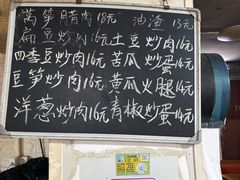 莴笋腊肉18元 油渣13元
扁豆炒肉16元 土豆炒肉16元
四季豆炒肉16元 苦瓜炒蛋14元
豆笋炒肉16元 黄瓜火腿14元
洋葱炒肉16元 青椒炒蛋14元